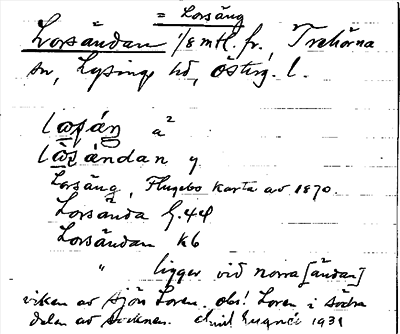 = Lorsäng
Lorsändan 1/8 mtl. fr., Trehörna
sn, Lysings hd, Österg. l.
a²
Lorsäng, Flugebo karta av 1870.
Lorsända G.44
Lorsändan k6
" ligger vid norra [ändan]
viken av sjön Loren. obs! Loren i södra
delen av socknen. 1931